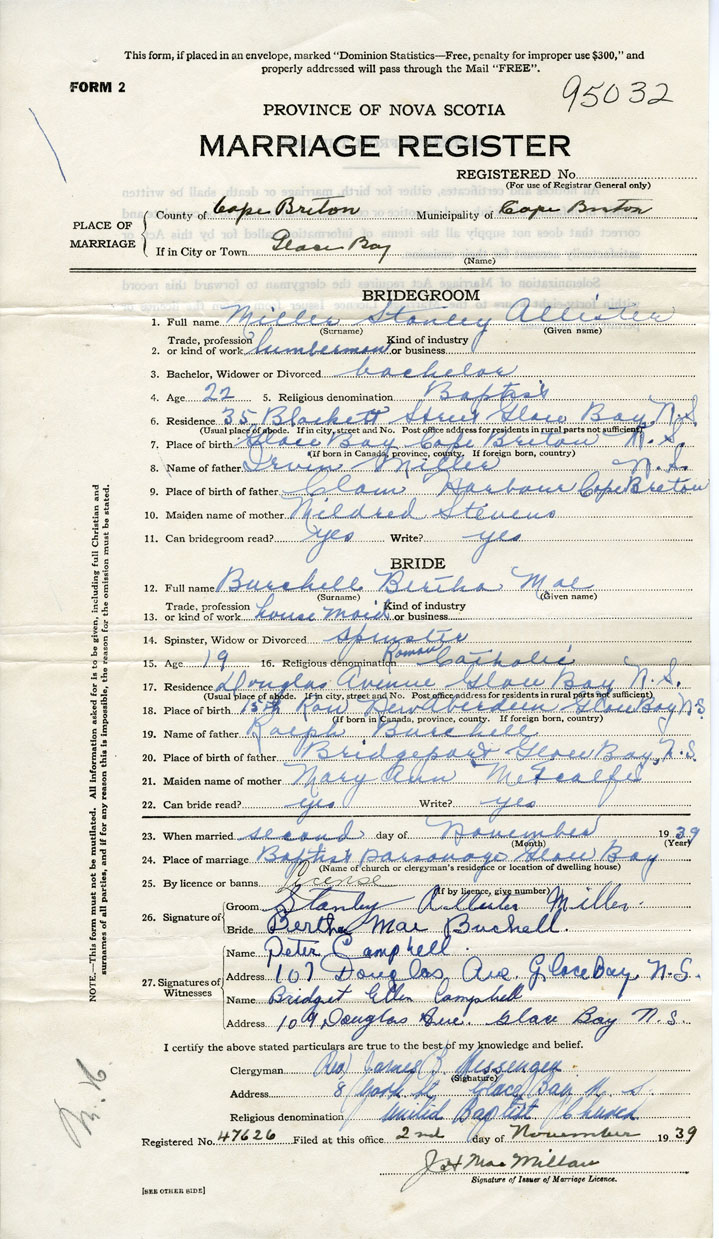 This form, if placed in an envelope, marked "Dominion Statistics—Free, penalty for improper use $300," and
properly addressed will pass through the Mail "FREE".
FORM 2
95032
PROVINCE OF NOVA SCOTIA
MARRIAGE REGISTER
REGISTERED No.
(For use of Registrar General only)
PLACE OF MARRIAGE
County of Cape Breton Municipality of Cape Breton
If in City or Town Glace Bay
(Name)
BRIDEGROOM
1. Full name Miller Stanley Allister
(Surname) (Given name)
Trade, profession Kind of industry
2. or kind of work lumberman or business
3. Bachelor, Widower or Divorced bachelor
4. Age 22 5. Religious denomination Baptist
6. Residence 35 Blackett Street Glace Bay N.S.
(Usual place of abode. If in city, street and No. Post office address for residents in rural parts not sufficient)
7. Place of birth Glace Bay Cape Breton N.S.
(If born in Canada, province, county. If foreign born, country)
8. Name of father Irvin Miller N.S.
9. Place of birth of father Clam Harbour Cape Breton
10. Maiden name of mother Mildred Stevens
11. Can bridegroom read? yes Write? yes
BRIDE
12. Full name Burchell Bertha Mae
(Surname) (Given name)
Trade, profession Kind of industry
13. or kind of work house maid or business
14. Spinster, Widow or Divorced spinster
15. Age 19 16. Religious denomination Roman Catholic
17. Residence Douglas Avenue Glace Bay N.S.
(Usual place of abode. If in city, street and No. Post office address for residents in rural parts not sufficient)
18. Place of birth Row New Aberdeen Glace Bay N.S.
(If born in Canada, province, county. If foreign born, country)
19. Name of father Ralph Burchell
20. Place of birth of father Bridgeport Glace Bay, N.S.
21. Maiden name of mother Mary Ann Metcalfe
22. Can bride read? yes Write? yes
23. When married second day of November 1939
(Month) (Year)
24. Place of marriage Baptist parsonage Glace Bay
(Name of church or clergyman's residence or location of dwelling house)
25. By licence or banns License
(If by licence, give number)
26. Signature of
Groom Stanley Allister Miller.
Bride Bertha Mae Buchell.
27. Signatures of Witnesses
Name Peter Campbell.
Address 107 Douglas Ave. Glace Bay. N.S.
Name Bridget Ellen Campbell
Address 109 Douglas Ave. Glace Bay N.S.
I certify the above stated particulars are true to the best of my knowledge and belief.
Clergyman Rev. James Messenger
(Signature)
Address 8 York St Glace Bay N S
Religious denomination United Baptist Church
Registered No. 47626 Filed at this office 2nd day of November 1939
J H MacMillan
Signature of Issuer of Marriage Licence.
[SEE OTHER SIDE]
NOTE.—This form must not be mutilated. All information asked for is to be given, including full Christian and
surnames of all parties, and if for any reason this is impossible, the reason for the omission must be stated.